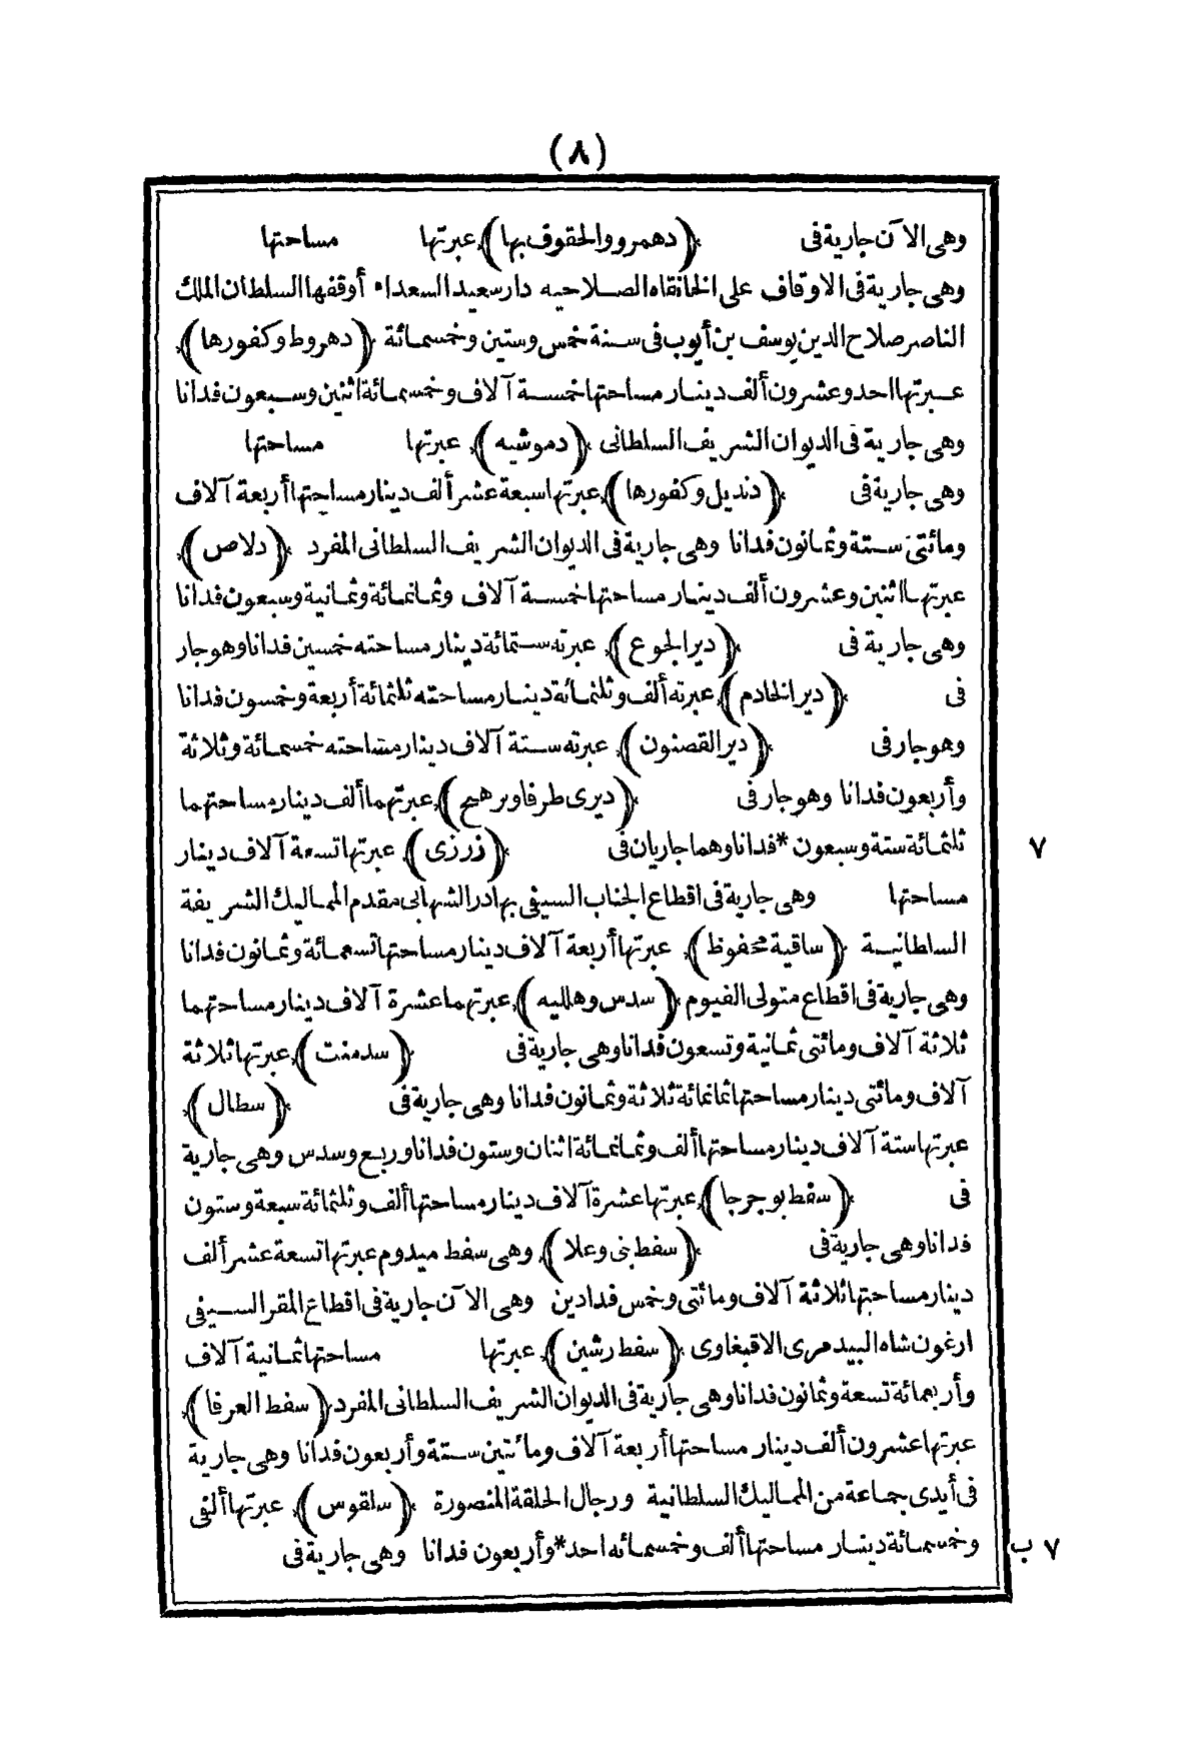 (٨)
وهى الآن جارية فى ﴿دهمرو والحقوف بها﴾ عبرتها مساحتها
وهى جارية فى الاوقاف على الخانقاه الصلاحيه دار سعيد السعداء أوقفها السلطان الملك
الناصر صلاح الدين يوسف بن أيوب فى سنة خمس وستين وخمسمائة ﴿دهروط وكفورها﴾
عبرتها احد وعشرون ألف دينار مساحتها خمسة آلاف وخمسمائة اثنين وسبعون فدانا
وهى جارية فى الديوان الشريف السلطانى ﴿دموشيه﴾ عبرتها مساحتها
وهى جارية فى ﴿دنديل وكفورها﴾ عبرتها سبعة عشر ألف دينار مساحتها أربعة آلاف
ومائتى ستة وثمانون فدانا وهى جارية فى الديوان الشريف السلطانى المفرد ﴿دلاص﴾
عبرتها اثنين وعشرون ألف دينار مساحتها خمسة آلاف وثمانمائة وثمانية وسبعون فدانا
وهى جارية فى ﴿دير الجوع﴾ عبرته ستمائة دينار مساحته خمسين فدانا وهو جار
فى ﴿دير الخادم﴾ عبرته ألف وثلثمائة دينار مساحته ثلثمائة أربعة وخمسون فدانا
وهو جار فى ﴿دير القصنون﴾ عبرته ستة آلاف دينار مساحته خمسمائة وثلاثة
وأربعون فدانا وهو جار فى ﴿ديرى طرفا وبرهيج﴾ عبرتهما ألف دينار مساحتهما
ثلثمائة ستة وسبعون * فدانا وهما جاريان فى ﴿زرزى﴾ عبرتها تسعة آلاف دينار ٧
مساحتها وهى جارية فى اقطاع الجناب السيفى بهادر الشهابى مقدم المماليك الشريفة
السلطانية ﴿ساقية محفوظ﴾ عبرتها أربعة آلاف دينار مساحتها تسعمائة وثمانون فدانا
وهى جارية فى اقطاع متولى الفيوم ﴿سدس وهلليه﴾ عبرتهما عشرة آلاف دينار مساحتهما
ثلاثة آلاف ومائتى ثمانية وتسعون فدانا وهى جارية فى ﴿سدمنت﴾ عبرتها ثلاثة
آلاف ومائتى دينار مساحتها ثمانمائة ثلاثة وثمانون فدانا وهى جارية فى ﴿سطال﴾
عبرتها ستة آلاف دينار مساحتها ألف وثمانمائة اثنان وستون فدانا وربع وسدس وهى جارية
فى ﴿سفط بو جرجا﴾ عبرتها عشرة آلاف دينار مساحتها ألف وثلثمائة سبعة وستون
فدانا وهى جارية فى ﴿سفط بنى وعلا﴾ وهى سفط ميدوم عبرتها تسعة عشر ألف
دينار مساحتها ثلاثة آلاف ومائتى وخمس فدادين وهى الآن جارية فى اقطاع المقر السيفى
ارغون شاه البيدمرى الاقبغاوى ﴿سفط رشين﴾ عبرتها مساحتها ثمانية آلاف
وأربعمائة تسعة وثمانون فدانا وهى جارية فى الديوان الشريف السلطانى المفرد ﴿سفط العرفا﴾
عبرتها عشرون ألف دينار مساحتها أربعة آلاف ومائتين ستة وأربعون فدانا وهى جارية
فى أيدى جماعة من المماليك السلطانية ورجال الحلقة المنصورة ﴿سلقوس﴾ عبرتها ألفى
وخمسمائة دينار مساحتها ألف وخمسمائه احد * وأربعون فدانا وهى جارية فى ٧ ب